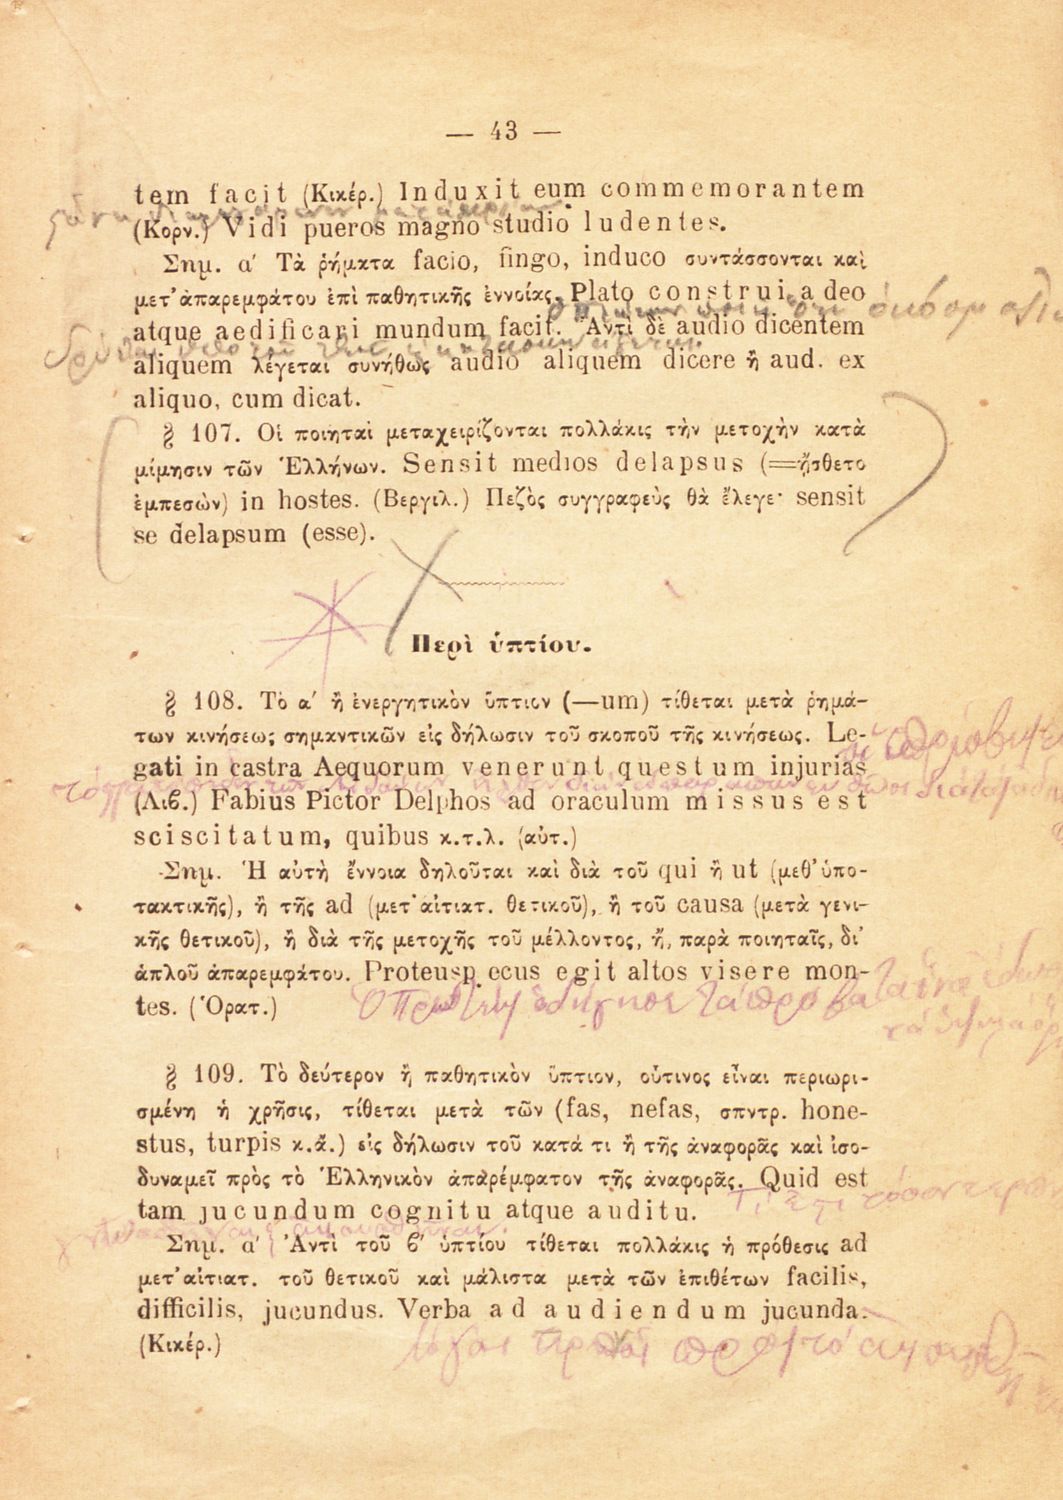 — 43 —
tem facit (Κικέρ.) Induxit eum commemorantem
(Κορν.) Vidi pueros magno studio ludentes.
Σημ. α΄ Τὰ ῥήματα facio, fingo, induco συντάσσονται καὶ
μετ᾽ ἀπαρεμφάτου ἐπὶ παθητικῆς ἐννοίας. Plato construi a deo
atque aedificari mundum facit. Ἀντὶ δὲ audio dicentem
aliquem λέγεται συνήθως audio aliquem dicere ἢ aud. ex
aliquo, cum dicat.
§ 107. Οἱ ποιηταὶ μεταχειρίζονται πολλάκις τὴν μετοχὴν κατὰ
μίμησιν τῶν Ἑλλήνων. Sensit medios delapsus (=ᾔσθετο
ἐμπεσὼν) in hostes. (Βεργιλ.) Πεζὸς συγγραφεὺς θὰ ἔλεγε· sensit
se delapsum (esse).
Περὶ ὑπτίου.
§ 108. Τὸ α΄ ἢ ἐνεργητικὸν ὕπτιον (—um) τίθεται μετὰ ῥημά-
των κινήσεως σημαντικῶν εἰς δήλωσιν τοῦ σκοποῦ τῆς κινήσεως. Le-
gati in castra Aequorum venerunt questum injurias
(Λιϐ.) Fabius Pictor Delphos ad oraculum missus est
sciscitatum, quibus κ.τ.λ. (αὐτ.)
Σημ. Ἡ αὐτὴ ἔννοια δηλοῦται καὶ διὰ τοῦ qui ἢ ut (μεθ᾽ ὑπο-
τακτικῆς), ἢ τῆς ad (μετ᾽ αἰτιατ. θετικοῦ), ἢ τοῦ causa (μετὰ γενι-
κῆς θετικοῦ), ἢ διὰ τῆς μετοχῆς τοῦ μέλλοντος, ἢ, παρὰ ποιηταῖς, δι᾽
ἁπλοῦ ἀπαρεμφάτου. Proteusp ecus egit altos visere mon-
tes. (Ὁρατ.)
§ 109. Τὸ δεύτερον ἢ παθητικὸν ὕπτιον, οὗτινος εἶναι περιωρι-
σμένη ἡ χρῆσις, τίθεται μετὰ τῶν (fas, nefas, σπντρ. hone-
stus, turpis κ.ἄ.) εἰς δήλωσιν τοῦ κατά τι ἢ τῆς ἀναφορᾶς καὶ ἰσο-
δυναμεῖ πρὸς τὸ Ἑλληνικὸν ἀπαρέμφατον τῆς ἀναφορᾶς. Quid est
tam jucundum cognitu atque auditu.
Σημ. α΄ Ἀντὶ τοῦ ϐ΄ ὑπτίου τίθεται πολλάκις ἡ πρόθεσις ad
μετ᾽ αἰτιατ. τοῦ θετικοῦ καὶ μάλιστα μετὰ τῶν ἐπιθέτων facilis,
difficilis, jucundus. Verba ad audiendum jucunda.
(Κικέρ.)